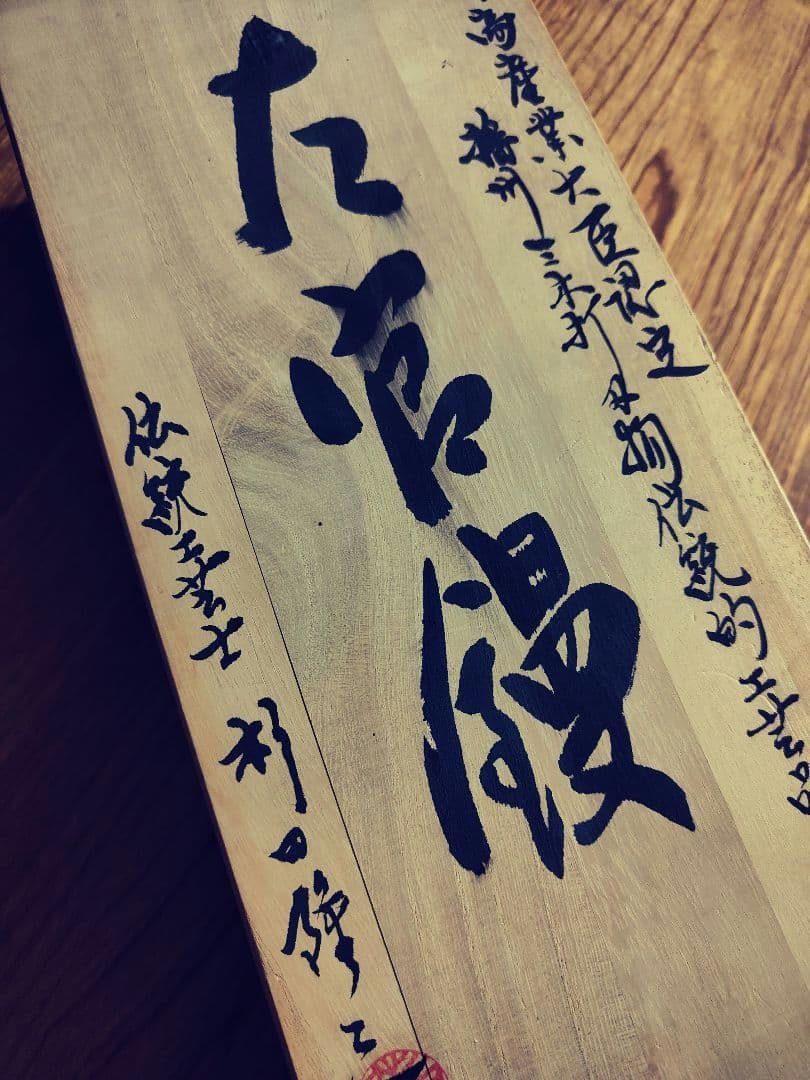 商産業大臣認定
播州三木打刃物伝統的工芸品
左官鏝
伝統工芸士 杉田